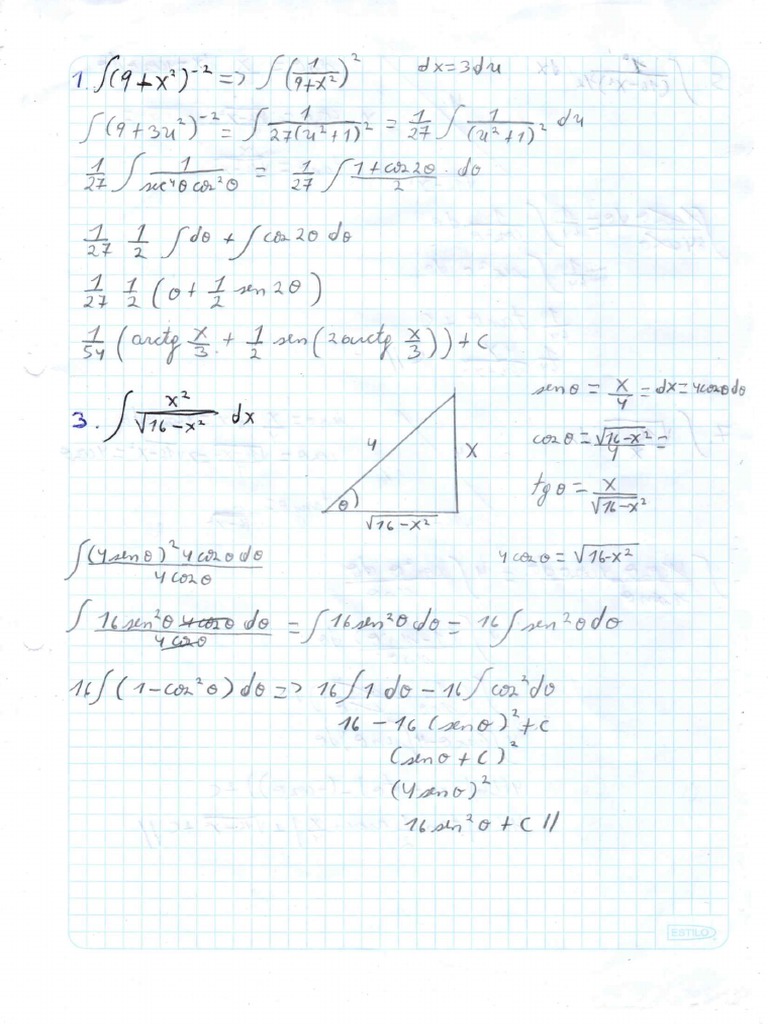 1. ∫(9+x²)⁻² => ∫(1/(9+x²))² dx=3du
∫(9+3u²)⁻² = ∫ 1/(27(u²+1)²) = 1/27 ∫ 1/(u²+1)² du
1/27 ∫ 1/(sec⁴θ cos²θ) = 1/27 ∫ (1+cos2θ)/2 · dθ
1/27 1/2 ∫dθ + ∫cos 2θ dθ
1/27 1/2 (θ + 1/2 sen 2θ)
1/54 (arctg x/3 + 1/2 sen(2arctg x/3)) + C
3. ∫ x²/√(16-x²) dx
4
x
θ
√(16-x²)
senθ = x/4 = dx=4cosθdθ
cosθ = √(16-x²)/4 =
tgθ = x/√(16-x²)
4cosθ = √(16-x²)
∫ (4senθ)² 4cosθ dθ / 4cosθ
∫ 16sen²θ 4cosθ dθ / 4cosθ = ∫16sen²θ dθ = 16∫sen²θdθ
16∫(1-cos²θ)dθ => 16∫1dθ - 16∫cos²dθ
16 - 16(senθ)²+C
(senθ+C)²
(4senθ)²
16sen²θ+C//
ESTILO